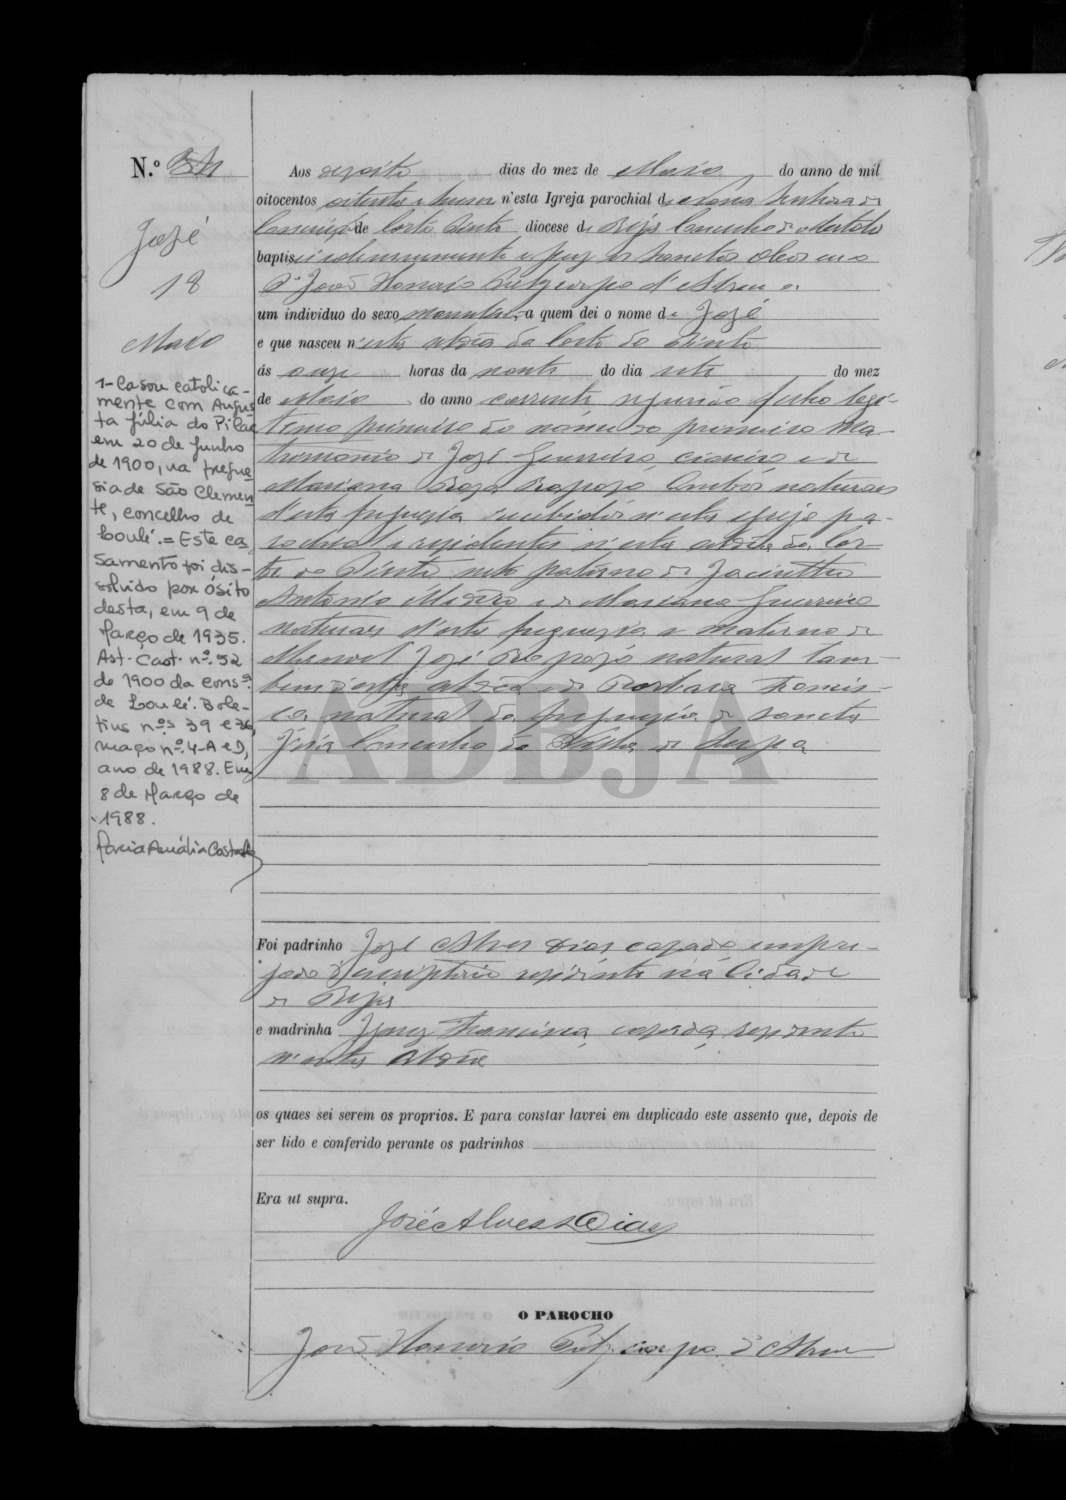 N.º
José
18
Maio
1- Casou catolica-
mente com Augus-
ta Júlia do Pilar
em 20 de Junho
de 1900, na fregue-
sia de São Clemen-
te, concelho de
Loulé. = Este ca-
samento foi dis-
solvido por óbito
desta, em 9 de
Março de 1935.
Ast. Cast. nº 52
de 1900 da consª
de Loulé. Bole-
tins nºs 39 e 36,
maço nº 4-A e D,
ano de 1988. Em
8 de Março de
1988.
Maria Amália Costa
Aos dezoito dias do mez de Maio, do anno de mil
oitocentos oitenta e n'esta Igreja parochial de Nossa Senhora da
Conceição de Corte Pinto diocese de Beja Concelho de Mertola
baptisei solemnemente e puz os Sanctos Oleos eu o
Pe João Honorio d'Abreu a
um individuo do sexo masculino, a quem dei o nome de José
e que nasceu n'esta aldeia da Corte do Pinto
ás onze horas da noute do dia sete do mez
de Maio do anno corrente, segundo filho legi-
timo primeiro do nome do primeiro Ma-
trimonio de José Guerreiro, e de
Marianna Roza Rapozo Ambos naturaes
d'esta freguezia recebidos n'esta igreja pa-
rochial e rezidentes n'esta aldeia da Cor-
te do Pinto neto paterno de Jacintho
Antonio e de Marianna Guerreiro
naturaes d'esta freguezia e materno de
Manoel José Rapozo natural tam-
bem d'esta aldeia e de Barbara Francis-
ca natural da freguezia de Sancta
Iria Concelho de Serpa
ADBJA
Foi padrinho José Alves Dias, cazado empre-
gado d'escriptorio rezidente na Cidade
de Beja
e madrinha Ignez Francisca, cazada, rezidente
n'esta Aldeia
os quaes sei serem os proprios. E para constar lavrei em duplicado este assento que, depois de
ser lido e conferido perante os padrinhos
Era ut supra.
José Alves Dias
O PAROCHO
João Honorio d'Abreu